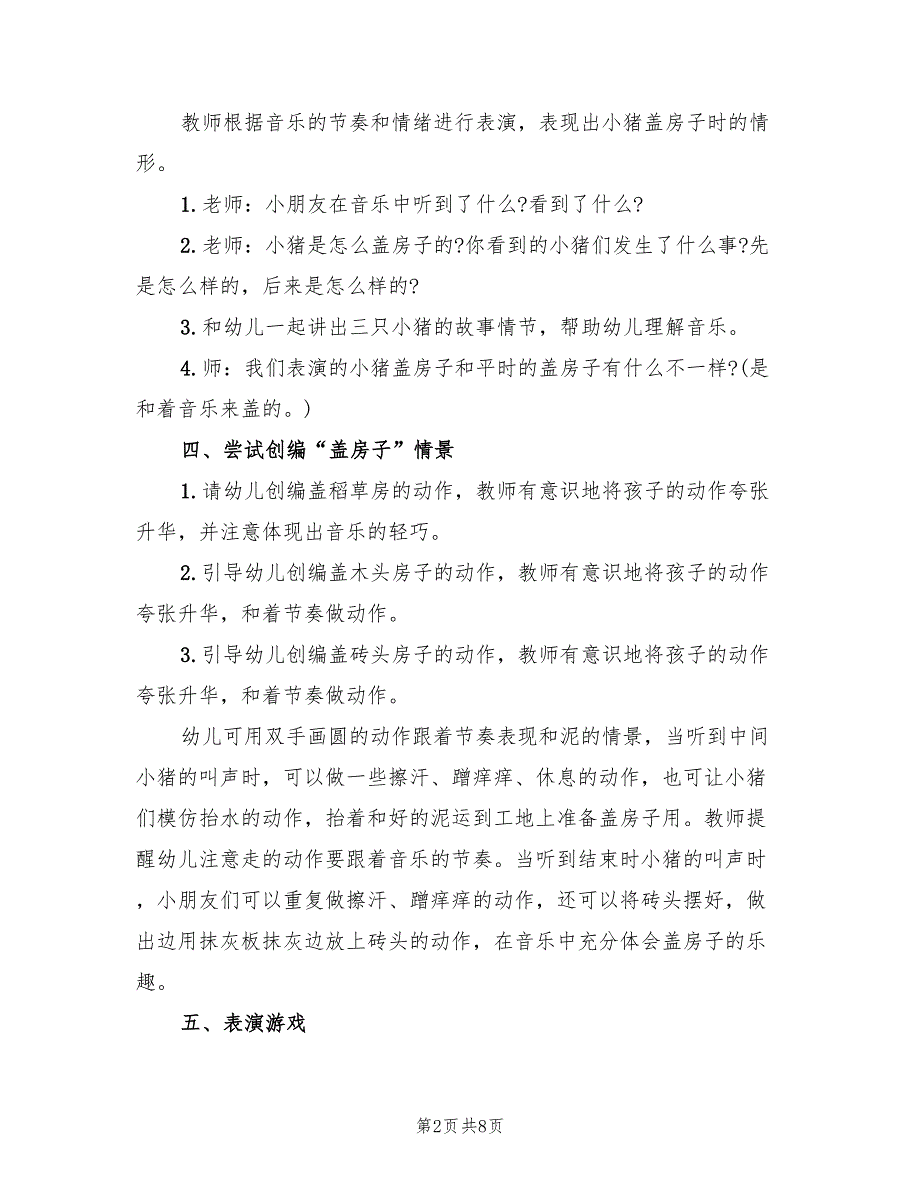 教师根据音乐的节奏和情绪进行表演，表现出小猪盖房子时的情
形。
1. 老师：小朋友在音乐中听到了什么?看到了什么?
2. 老师：小猪是怎么盖房子的?你看到的小猪们发生了什么事?先
是怎么样的，后来是怎么样的?
3. 和幼儿一起讲出三只小猪的故事情节，帮助幼儿理解音乐。
4. 师：我们表演的小猪盖房子和平时的盖房子有什么不一样?(是
和着音乐来盖的。)
四、尝试创编“盖房子”情景
1. 请幼儿创编盖稻草房的动作，教师有意识地将孩子的动作夸张
升华，并注意体现出音乐的轻巧。
2. 引导幼儿创编盖木头房子的动作，教师有意识地将孩子的动作
夸张升华，和着节奏做动作。
3. 引导幼儿创编盖砖头房子的动作，教师有意识地将孩子的动作
夸张升华，和着节奏做动作。
幼儿可用双手画圆的动作跟着节奏表现和泥的情景，当听到中间
小猪的叫声时，可以做一些擦汗、蹭痒痒、休息的动作，也可让小猪
们模仿抬水的动作，抬着和好的泥运到工地上准备盖房子用。教师提
醒幼儿注意走的动作要跟着音乐的节奏。当听到结束时小猪的叫声时
，小朋友们可以重复做擦汗、蹭痒痒的动作，还可以将砖头摆好，做
出边用抹灰板抹灰边放上砖头的动作，在音乐中充分体会盖房子的乐
趣。
五、表演游戏
第2页 共8页